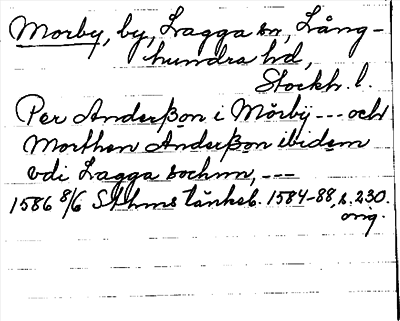 Morby, by, Lagga sn, Lång-
hundra hd,
Stockh. l.
Per Anderßon i Mörbÿ --- och
Morthen Anderßon ibidem
vdi Lagga sochnn, ---
1586 8/6 Sthms tänkeb. 1584-88, s. 230.
orig.